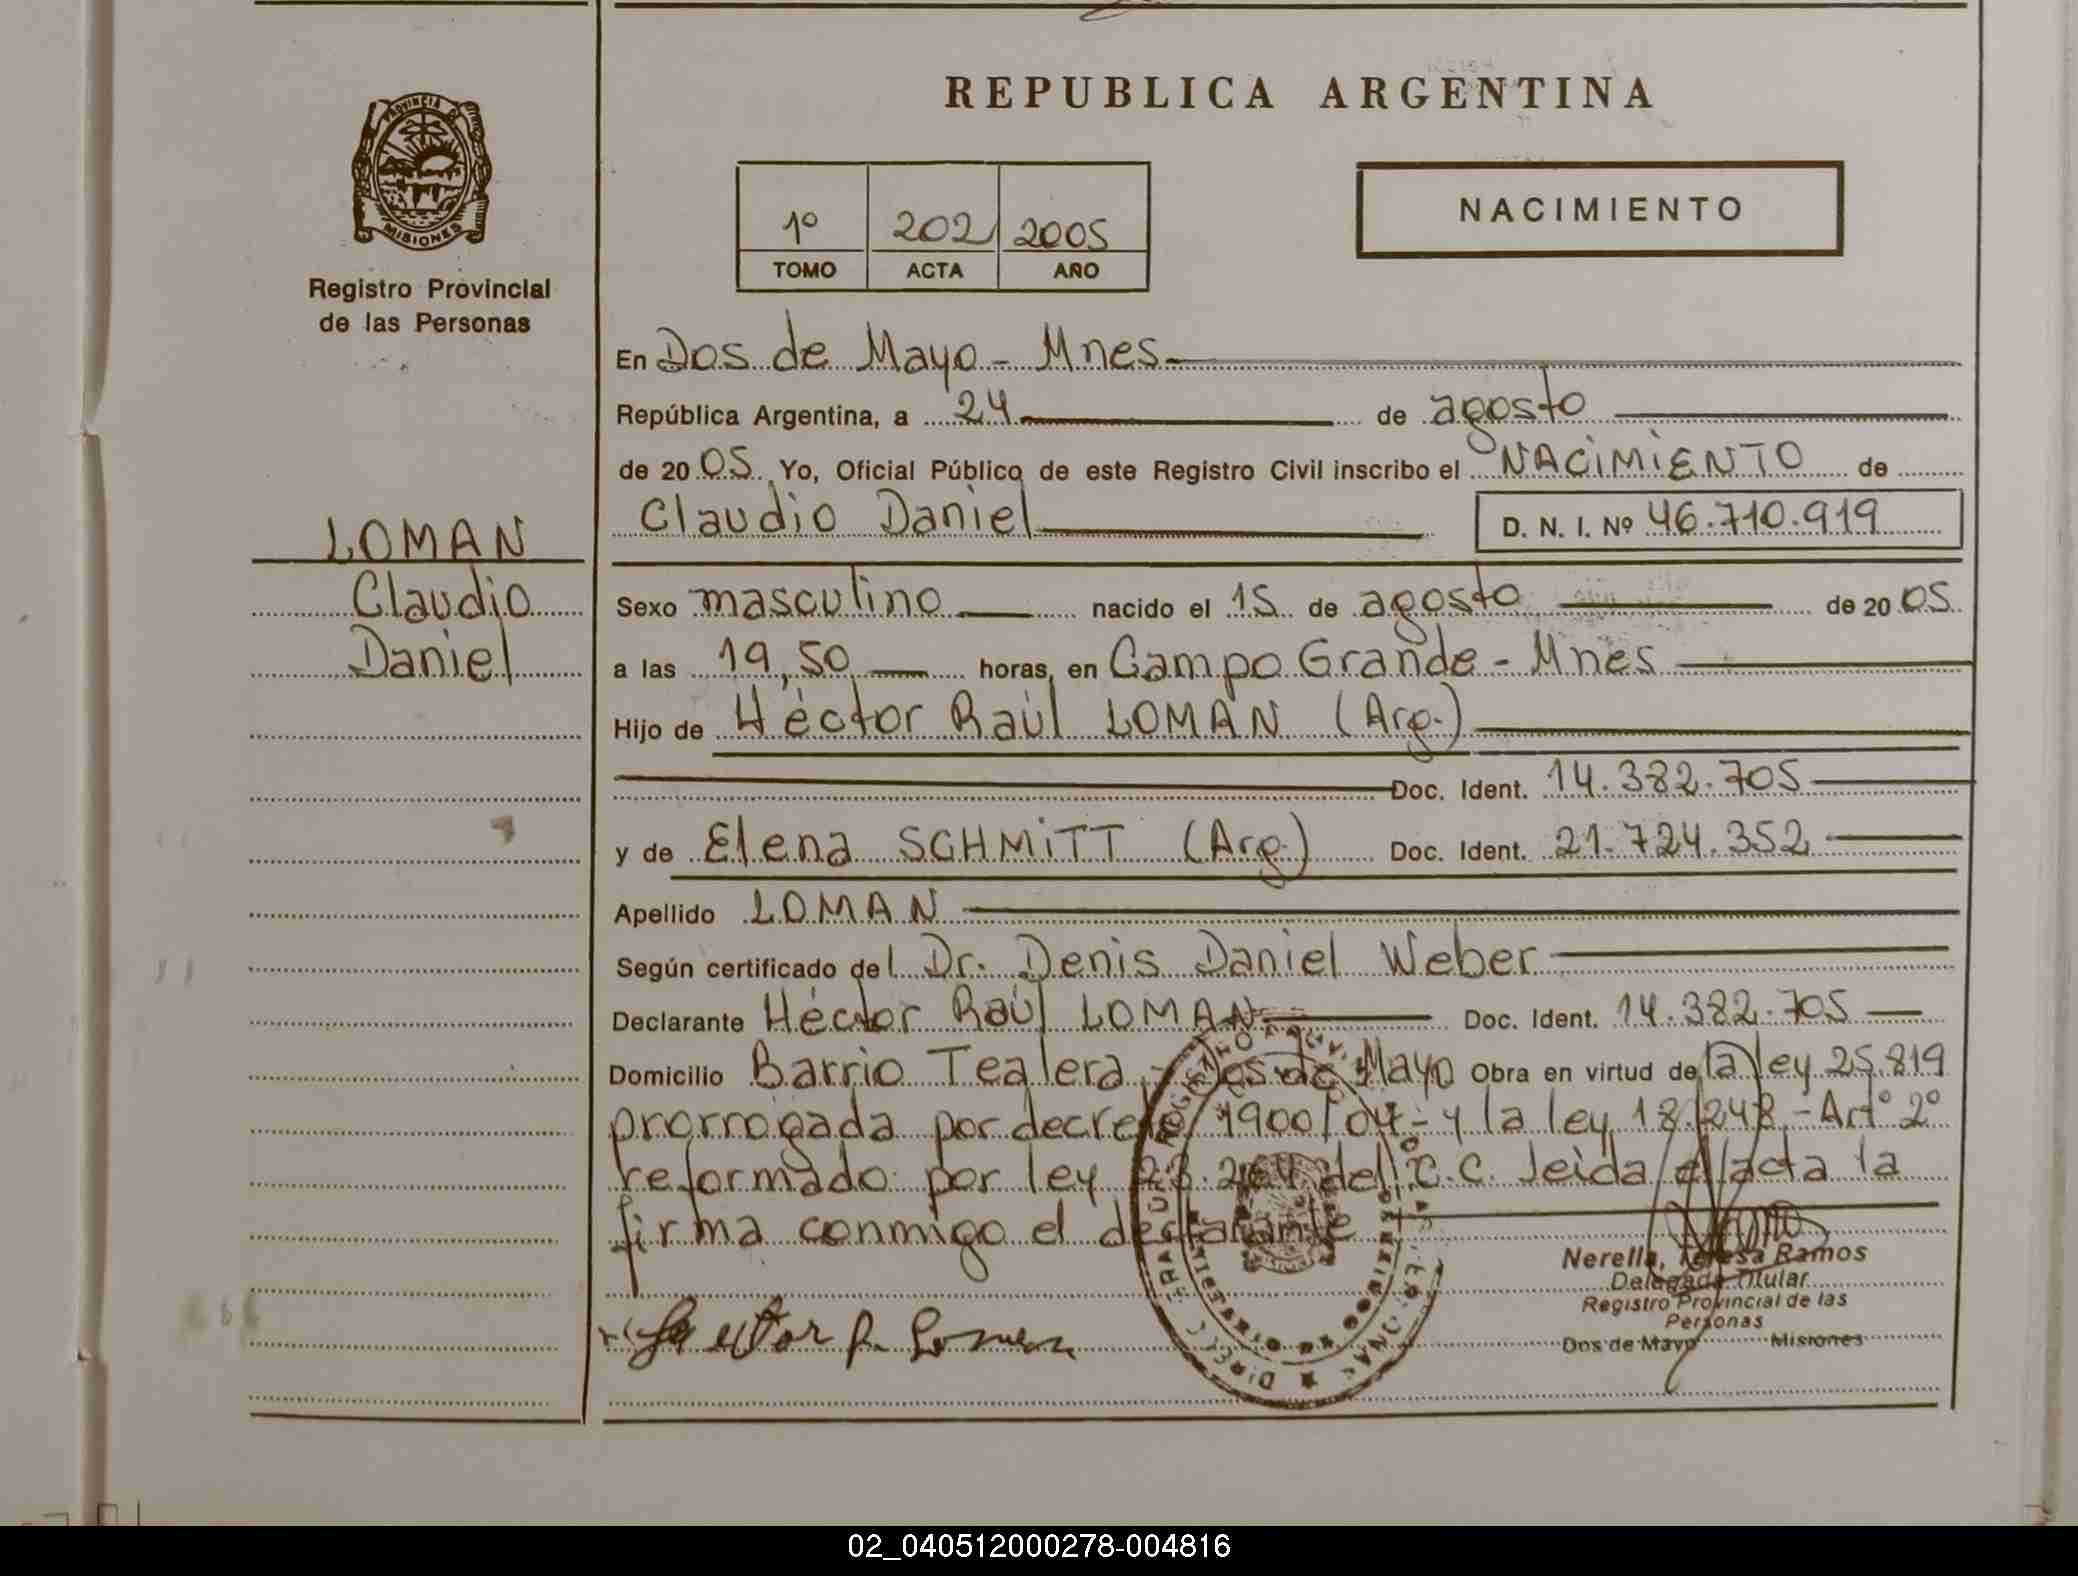 REPUBLICA ARGENTINA
PROVINCIA DE
MISIONES
Registro Provincial
de las Personas
1º 202 2005
TOMO ACTA AÑO
NACIMIENTO
En Dos de Mayo - Mnes
República Argentina, a 24 de agosto
de 20 05 Yo, Oficial Público de este Registro Civil inscribo el NACIMIENTO de
Claudio Daniel D. N. I. Nº 46.710.919
LOMAN
Claudio
Daniel
Sexo masculino nacido el 15 de agosto de 20 05
a las 19,50 horas, en Campo Grande - Mnes
Hijo de Héctor Raúl LOMAN (Arg.)
Doc. Ident. 14.382.705
y de Elena SCHMITT (Arg.) Doc. Ident. 21.724.352
Apellido LOMAN
Según certificado del Dr. Denis Daniel Weber
Declarante Héctor Raúl LOMAN Doc. Ident. 14.382.705
Domicilio Barrio Tealera - Dos de Mayo Obra en virtud de la ley 25.819
prorrogada por decreto 1900/04 - y la ley 18.248 - Art° 2°
reformado por ley 23.264 del C.C. leida el acta la
firma conmigo el declarante
Nerella, Teresa Ramos
Delegada Titular
Registro Provincial de las
Personas
Dos de Mayo Misiones
Hector R. Loman
02_040512000278-004816